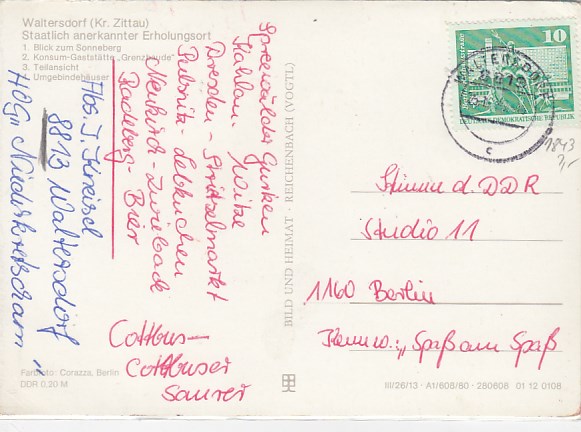 Waltersdorf (Kr. Zittau)
Staatlich anerkannter Erholungsort
1. Blick zum Sonneberg
2. Konsum-Gaststätte „Grenzbaude"
3. Teilansicht
4. Umgebindehäuser
Spreewälder Gurken
Kahlau - Witze
Dresden - Stritzelmarkt
Pulsnitz - Lebkuchen
Neukirch - Zwieback
Radeberg - Bier
Cottbus -
Cottbuser
Saurer
Abs. J. Kreisel
8813 Waltersdorf
Farbfoto: Corazza, Berlin
DDR 0,20 M
BILD UND HEIMAT · REICHENBACH (VOGTL)
10
DEUTSCHE DEMOKRATISCHE REPUBLIK
WALTERSDORF
8813
c
1843
Stimme d. DDR
Studio 11
1160 Berlin
Kennw.: „Spaß am Spaß
III/26/13 · A1/608/80 · 280608 01 12 0108